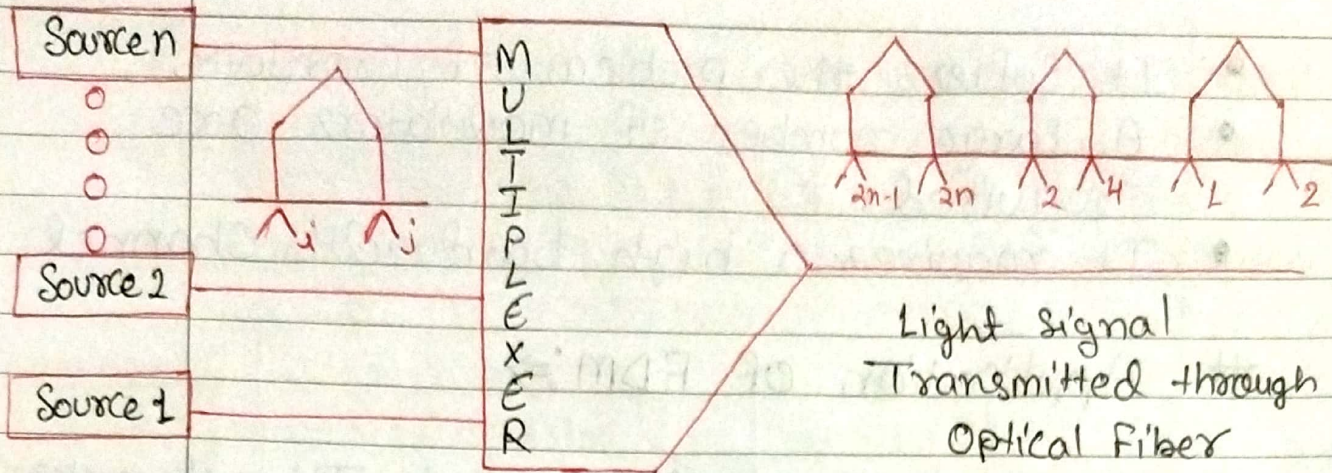 Source n
Source 2
Source 1
λi λj
MULTIPLEXER
λ2n-1 λ2n λ2 λ4 λ1 λ2
Light Signal
Transmitted through
Optical Fiber
OF FDM:-